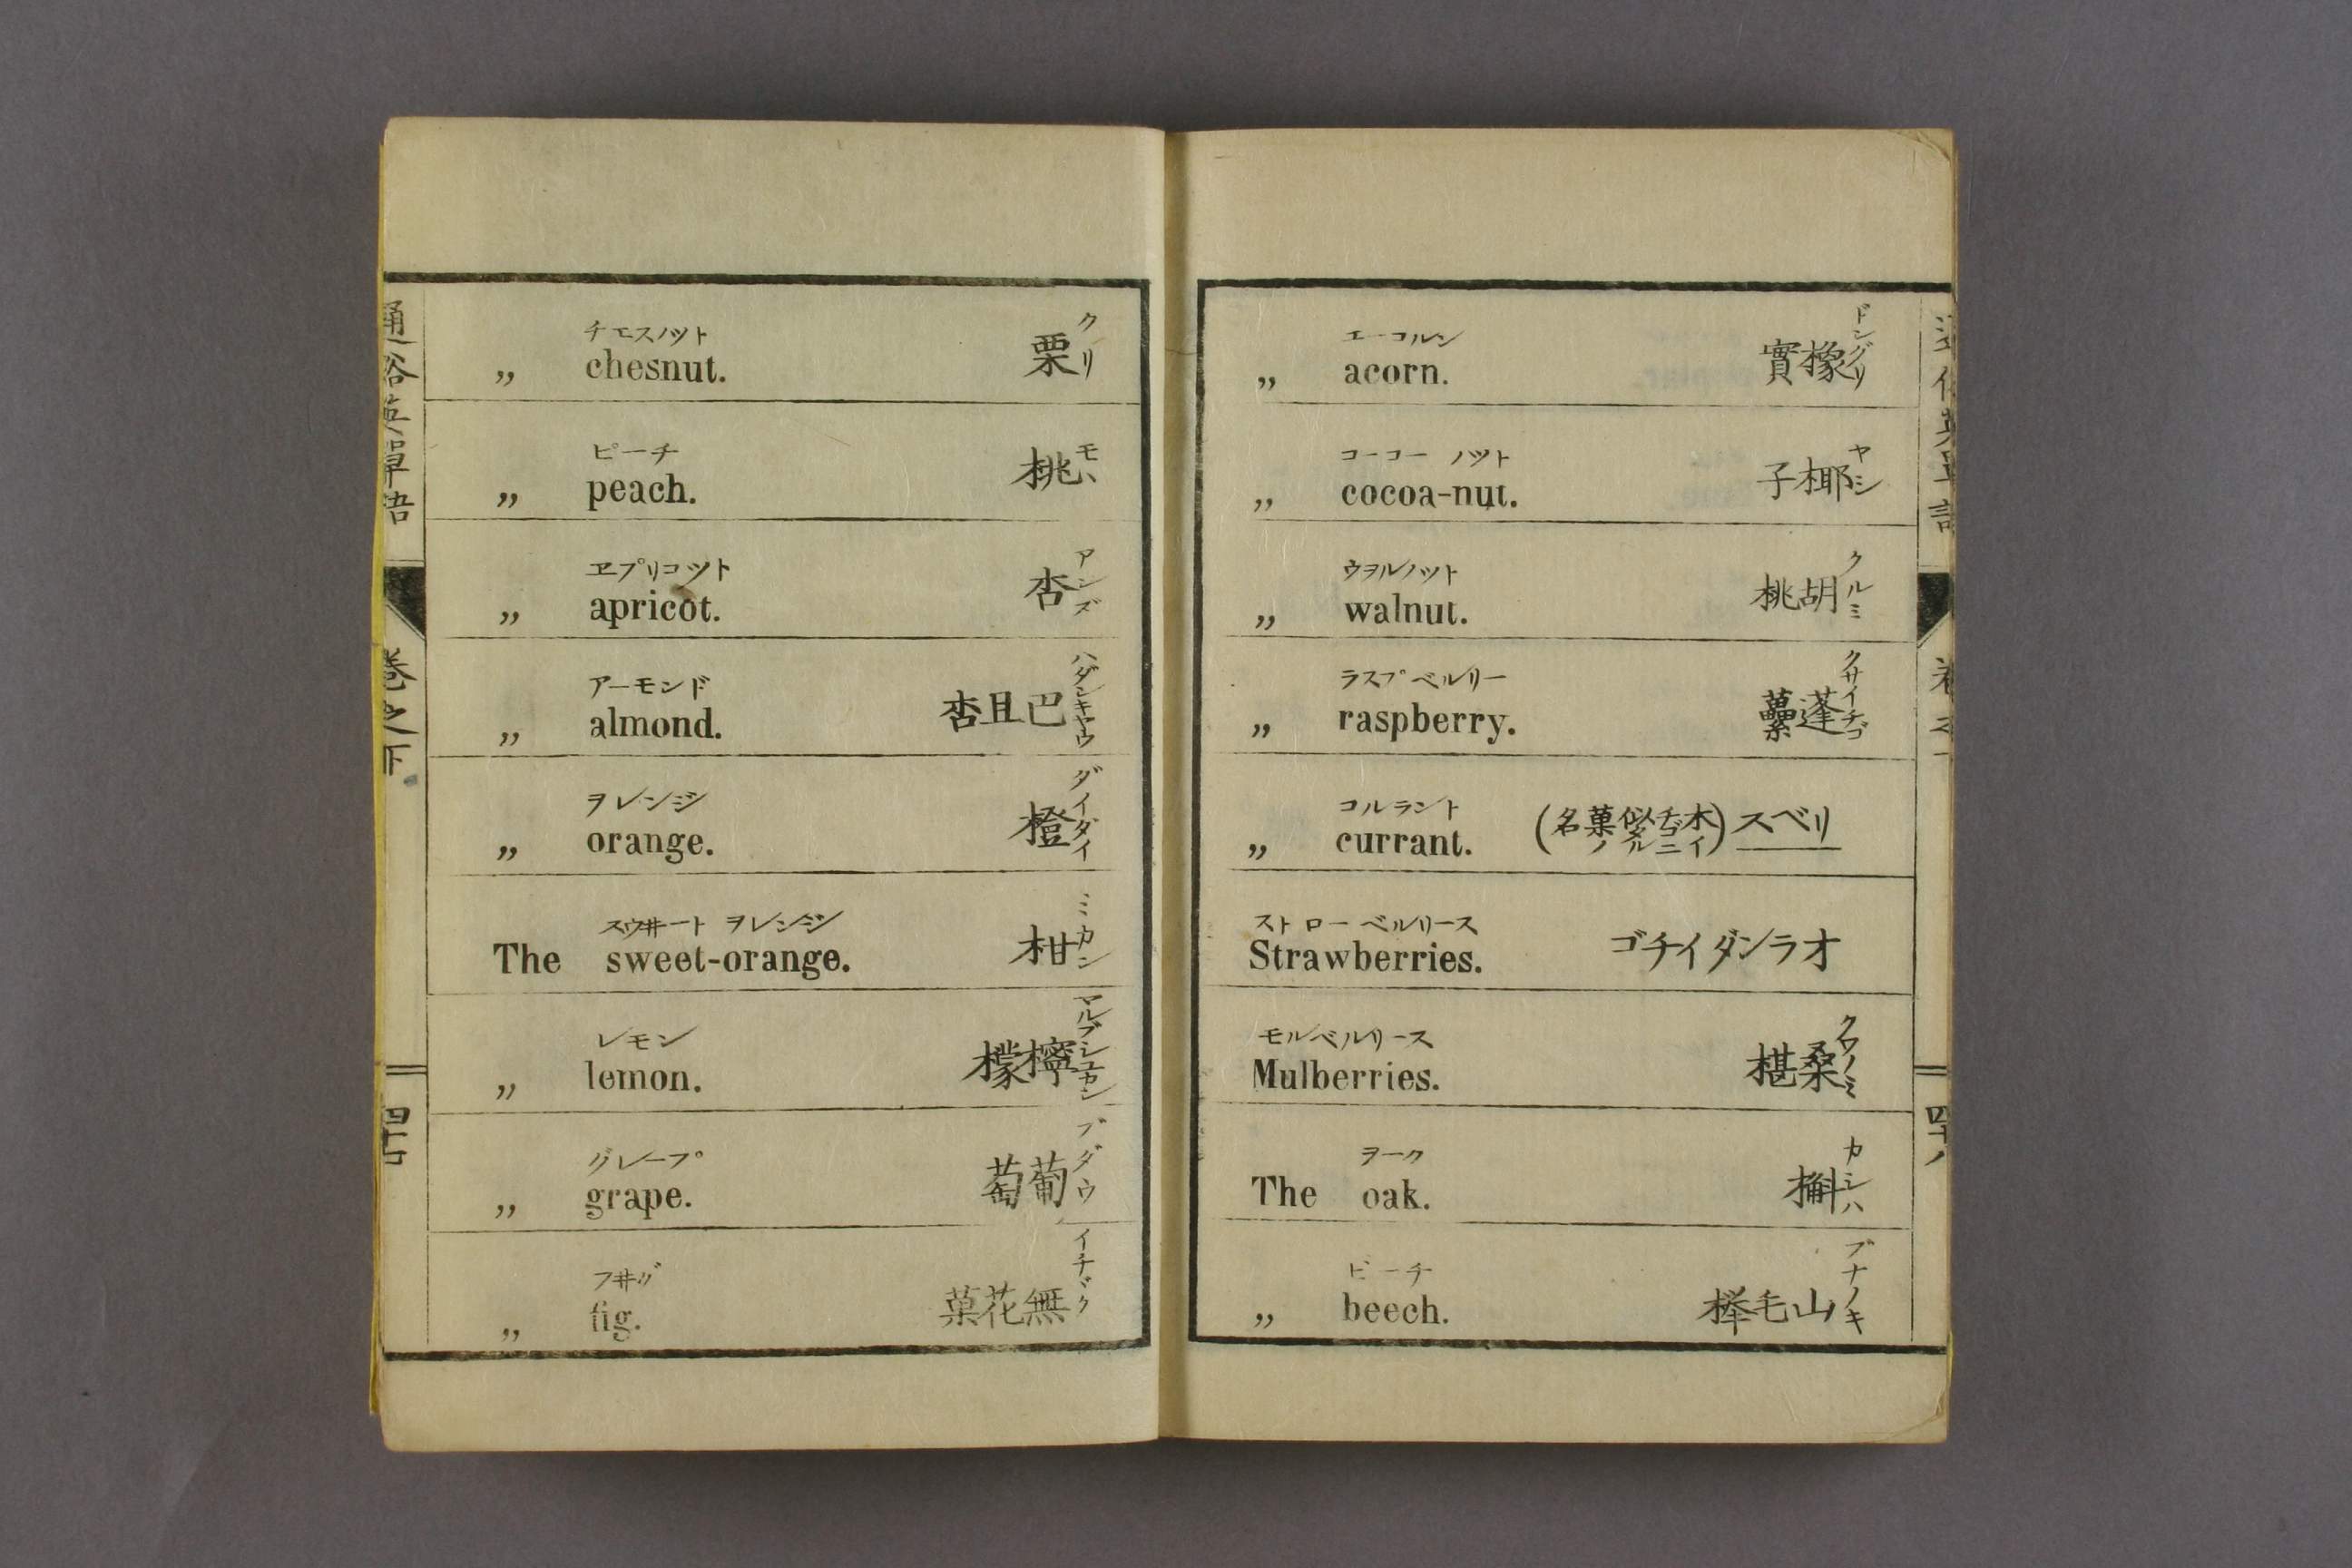 通俗英單語
卷之下
チエスノツト
„ chesnut. 栗 クリ
ピーチ
„ peach. 桃 モヽ
ヱプリコツト
„ apricot. 杏 アンズ
アーモンド
„ almond. 巴且杏 ハダンキヤウ
ヲレンジ
„ orange. 橙 ダイダイ
スウ井ート ヲレンジ
The sweet-orange. 柑 ミカン
レモン
„ lemon. 檸檬 マルブシユカン
グレープ
„ grape. 葡萄 ブダウ
フ井グ
„ fig. 無花菓 イチヂク
エーコルン
„ acorn. 橡實 ドングリ
コーコー ノツト
„ cocoa-nut. 椰子 ヤシ
ウヲルノツト
„ walnut. 胡桃 クルミ
ラスプベルリー
„ raspberry. 蓬虆 クサイチゴ
コルラント
„ currant. リベス(木イチゴニ似タル菓ノ名)
ストローベルリース
Strawberries. オランダイチゴ
モルベルリース
Mulberries. 桑椹 クワノミ
ヲーク
The oak. 槲 カシハ
ビーチ
„ beech. 山毛欅 ブナノキ